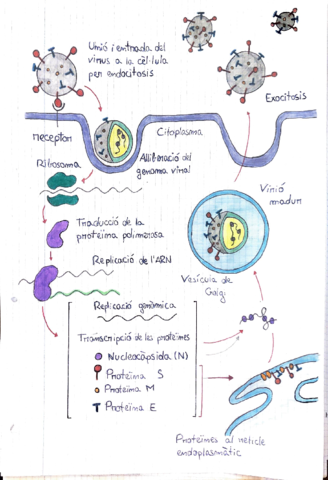 Unió i entrada del
virus a la cèl·lula
per endocitosis
Exocitosis
receptor
Citoplasma
Ribosoma
Alliberació del
genoma viral
Virió
madur
Traducció de la
proteïna polimerasa
Replicació de l'ARN
Vesícula de
Golgi
Replicació genòmica
Transcripció de les proteïnes
Nucleocàpsida (N)
Proteïna S
Proteïna M
Proteïna E
Proteïnes al reticle
endoplasmàtic